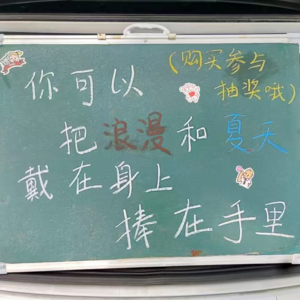 你可以
(购买参与
抽奖哦)
把浪漫和夏天
戴在身上
捧在手里